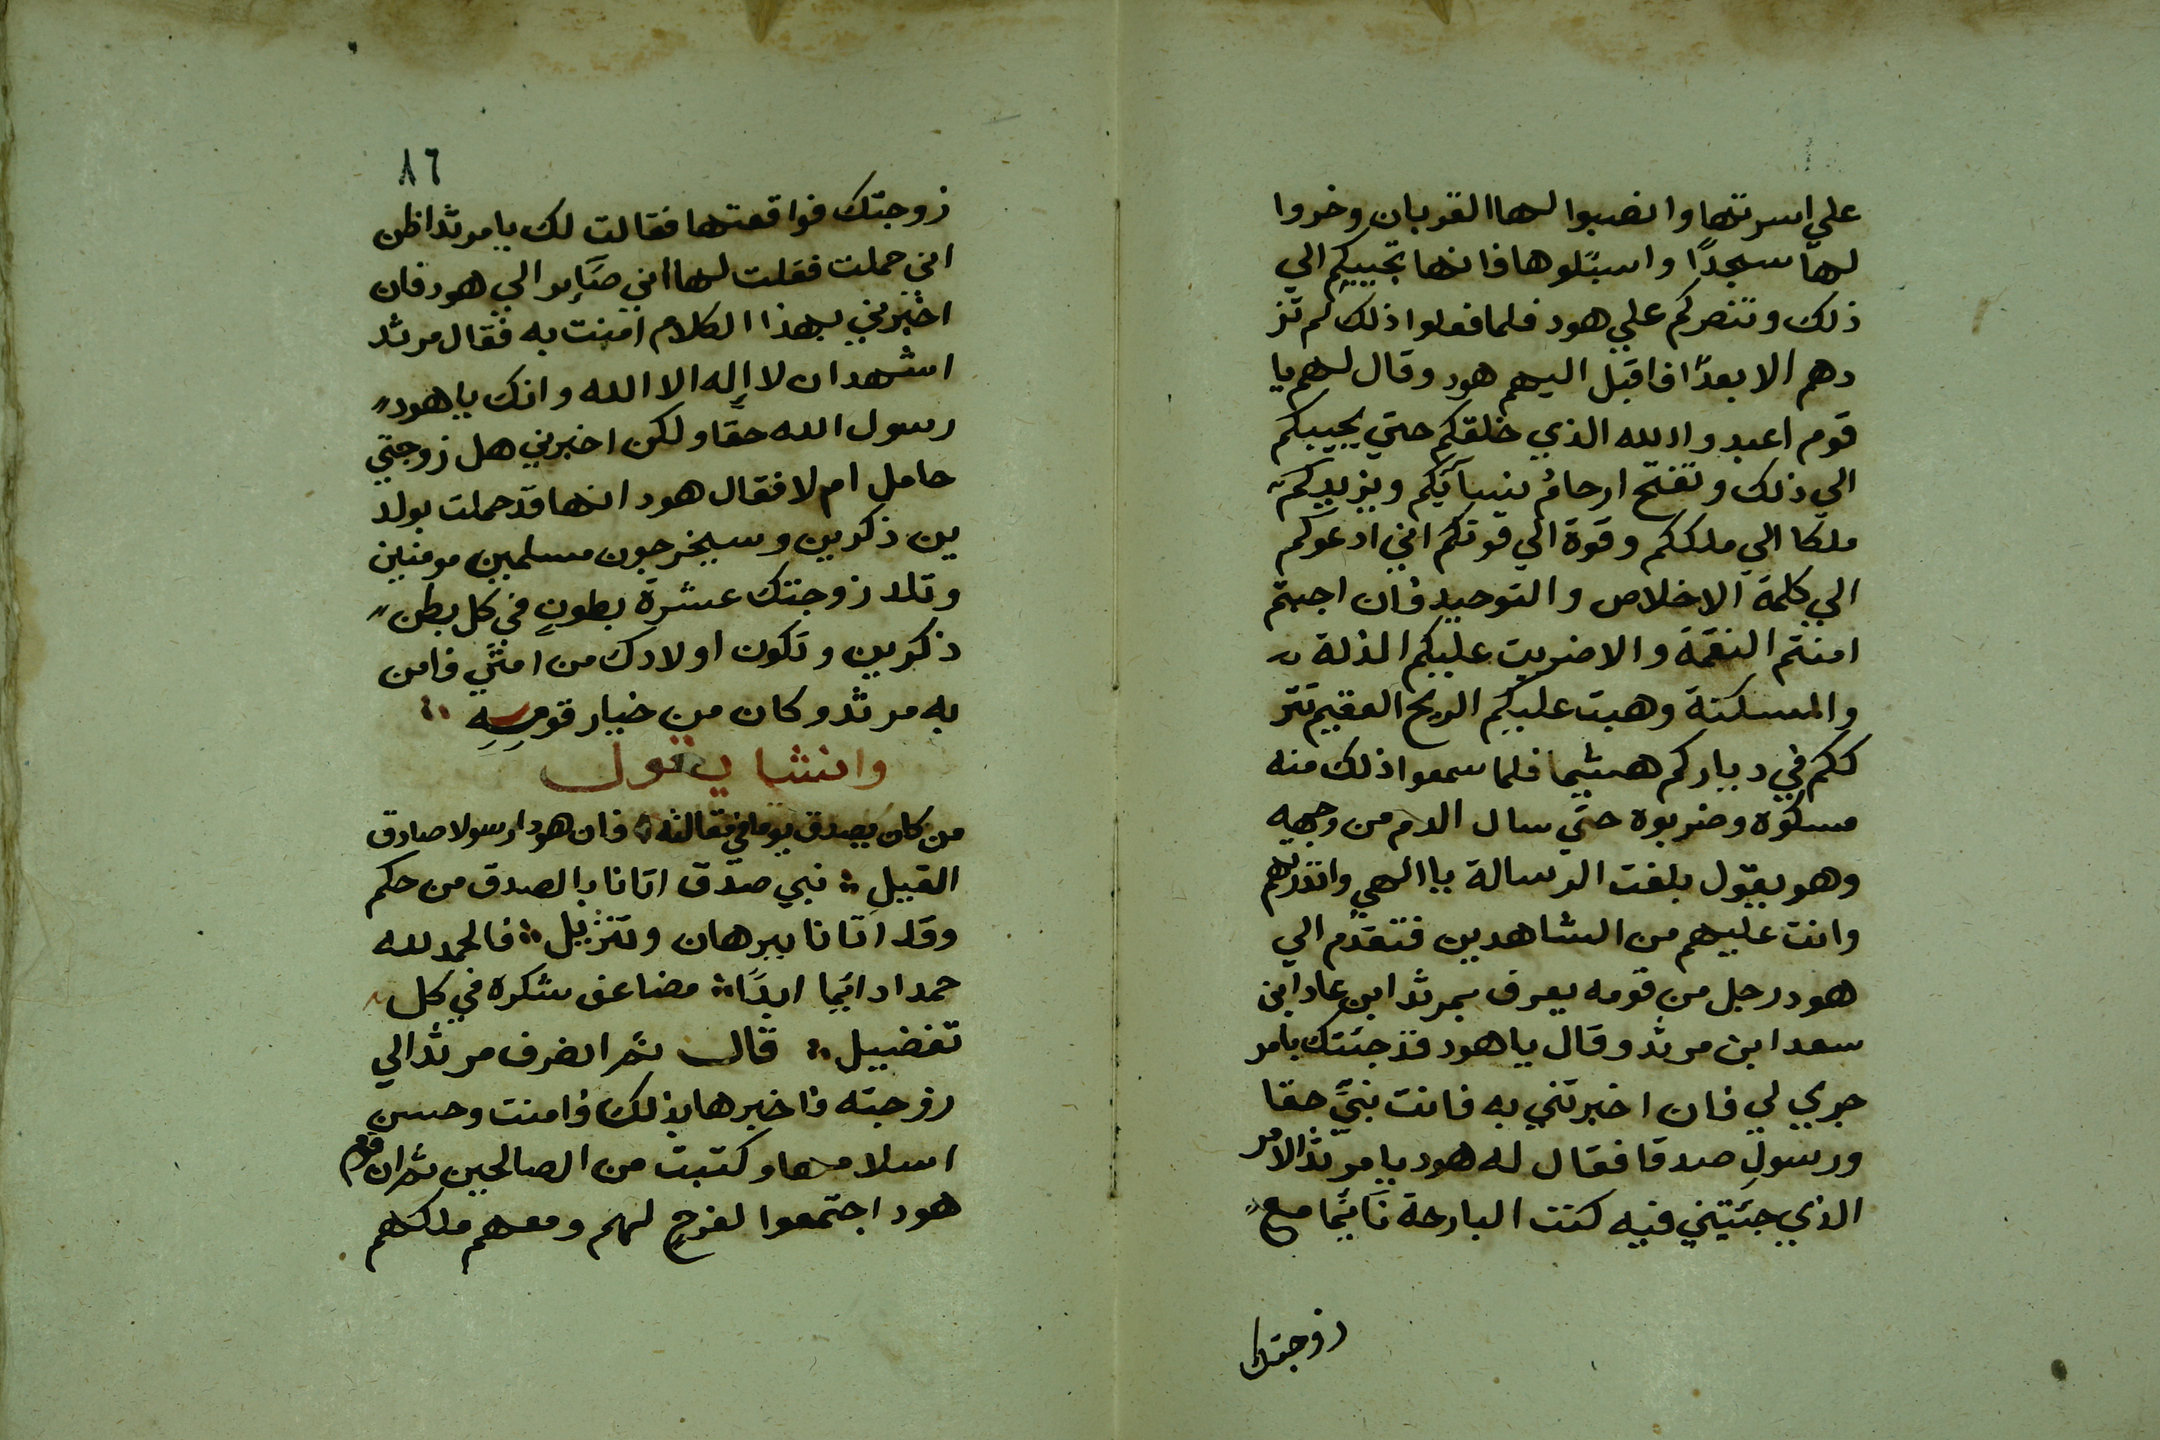 علي اسرتها وانصبوا لها القربان وخروا
لها سجدًا واسبلوها فانها تجيبكم الي
ذلك وتنصركم علي هود فلما فعلوا ذلك لم تز
دهم الا بعدًا فاقبل اليهم هود وقال لهم يا
قوم اعبدوا الله الذي خلقكم حتي يجيبكم
الي ذلك وتفتح ارحام نسآئكم ويزيدكم
ملكا الي ملككم وقوة الي قوتكم اني ادعوكم
الي كلمة الاخلاص والتوحيد فان اجبتم
امنتم النقمة والا ضربت عليكم الذلة
والمسكنة وهبت عليكم الريح العقيم تتر
ككم في دياركم هشيما فلما سمعوا ذلك منه
مسكوه وضربوه حتي سال الدم من وجهه
وهو يقول بلغت الرسالة يا الهي وانذرتهم
وانت عليهم من الشاهدين فتقدم الي
هود رجل من قومه يعرف بمرثد ابن عاد ابن
سعد ابن مرثد وقال يا هود قد جئتك بامر
جري لي فان اخبرتني به فانت نبيً حقا
ورسول صدقا فقال له هود يا مرثد الامر
الذي جئتني فيه كنت البارحة نائما مع
زوجتك
٨٦
زوجتك فواقعتها فقالت لك يا مرثد اظن
اني حملت فقلت لها اني صآير الي هود فان
اخبرني بهذا الكلام امنت به فقال مرثد
اشهد ان لا اله الا الله وانك يا هود
رسول الله حقا ولكن اخبرني هل زوجتي
حامل ام لا فقال هود انها قد حملت بولد
ين ذكرين وسيخرجون مسلمين مومنين
وتلد زوجتك عشرة بطون في كل بطن
ذكرين وتكون اولادك من امتي فامن
به مرثد وكان من خيار قومه
وانشا يقول
من كان يصدق يوما في مقالته فان هودا رسولا صادق
القيل نبي صدق اتانا بالصدق من حكم
وقد اتانا ببرهان وتنزيل فالحمد لله
حمدا دائما ابدًا مضاعف شكره في كل
تفضيل قال ثم انصرف مرثد الي
زوجته فاخبرها بذلك فامنت وحسن
اسلامها وكتبت من الصالحين ثم ان قوم
هود اجتمعوا لفرح لهم ومعهم ملكهم